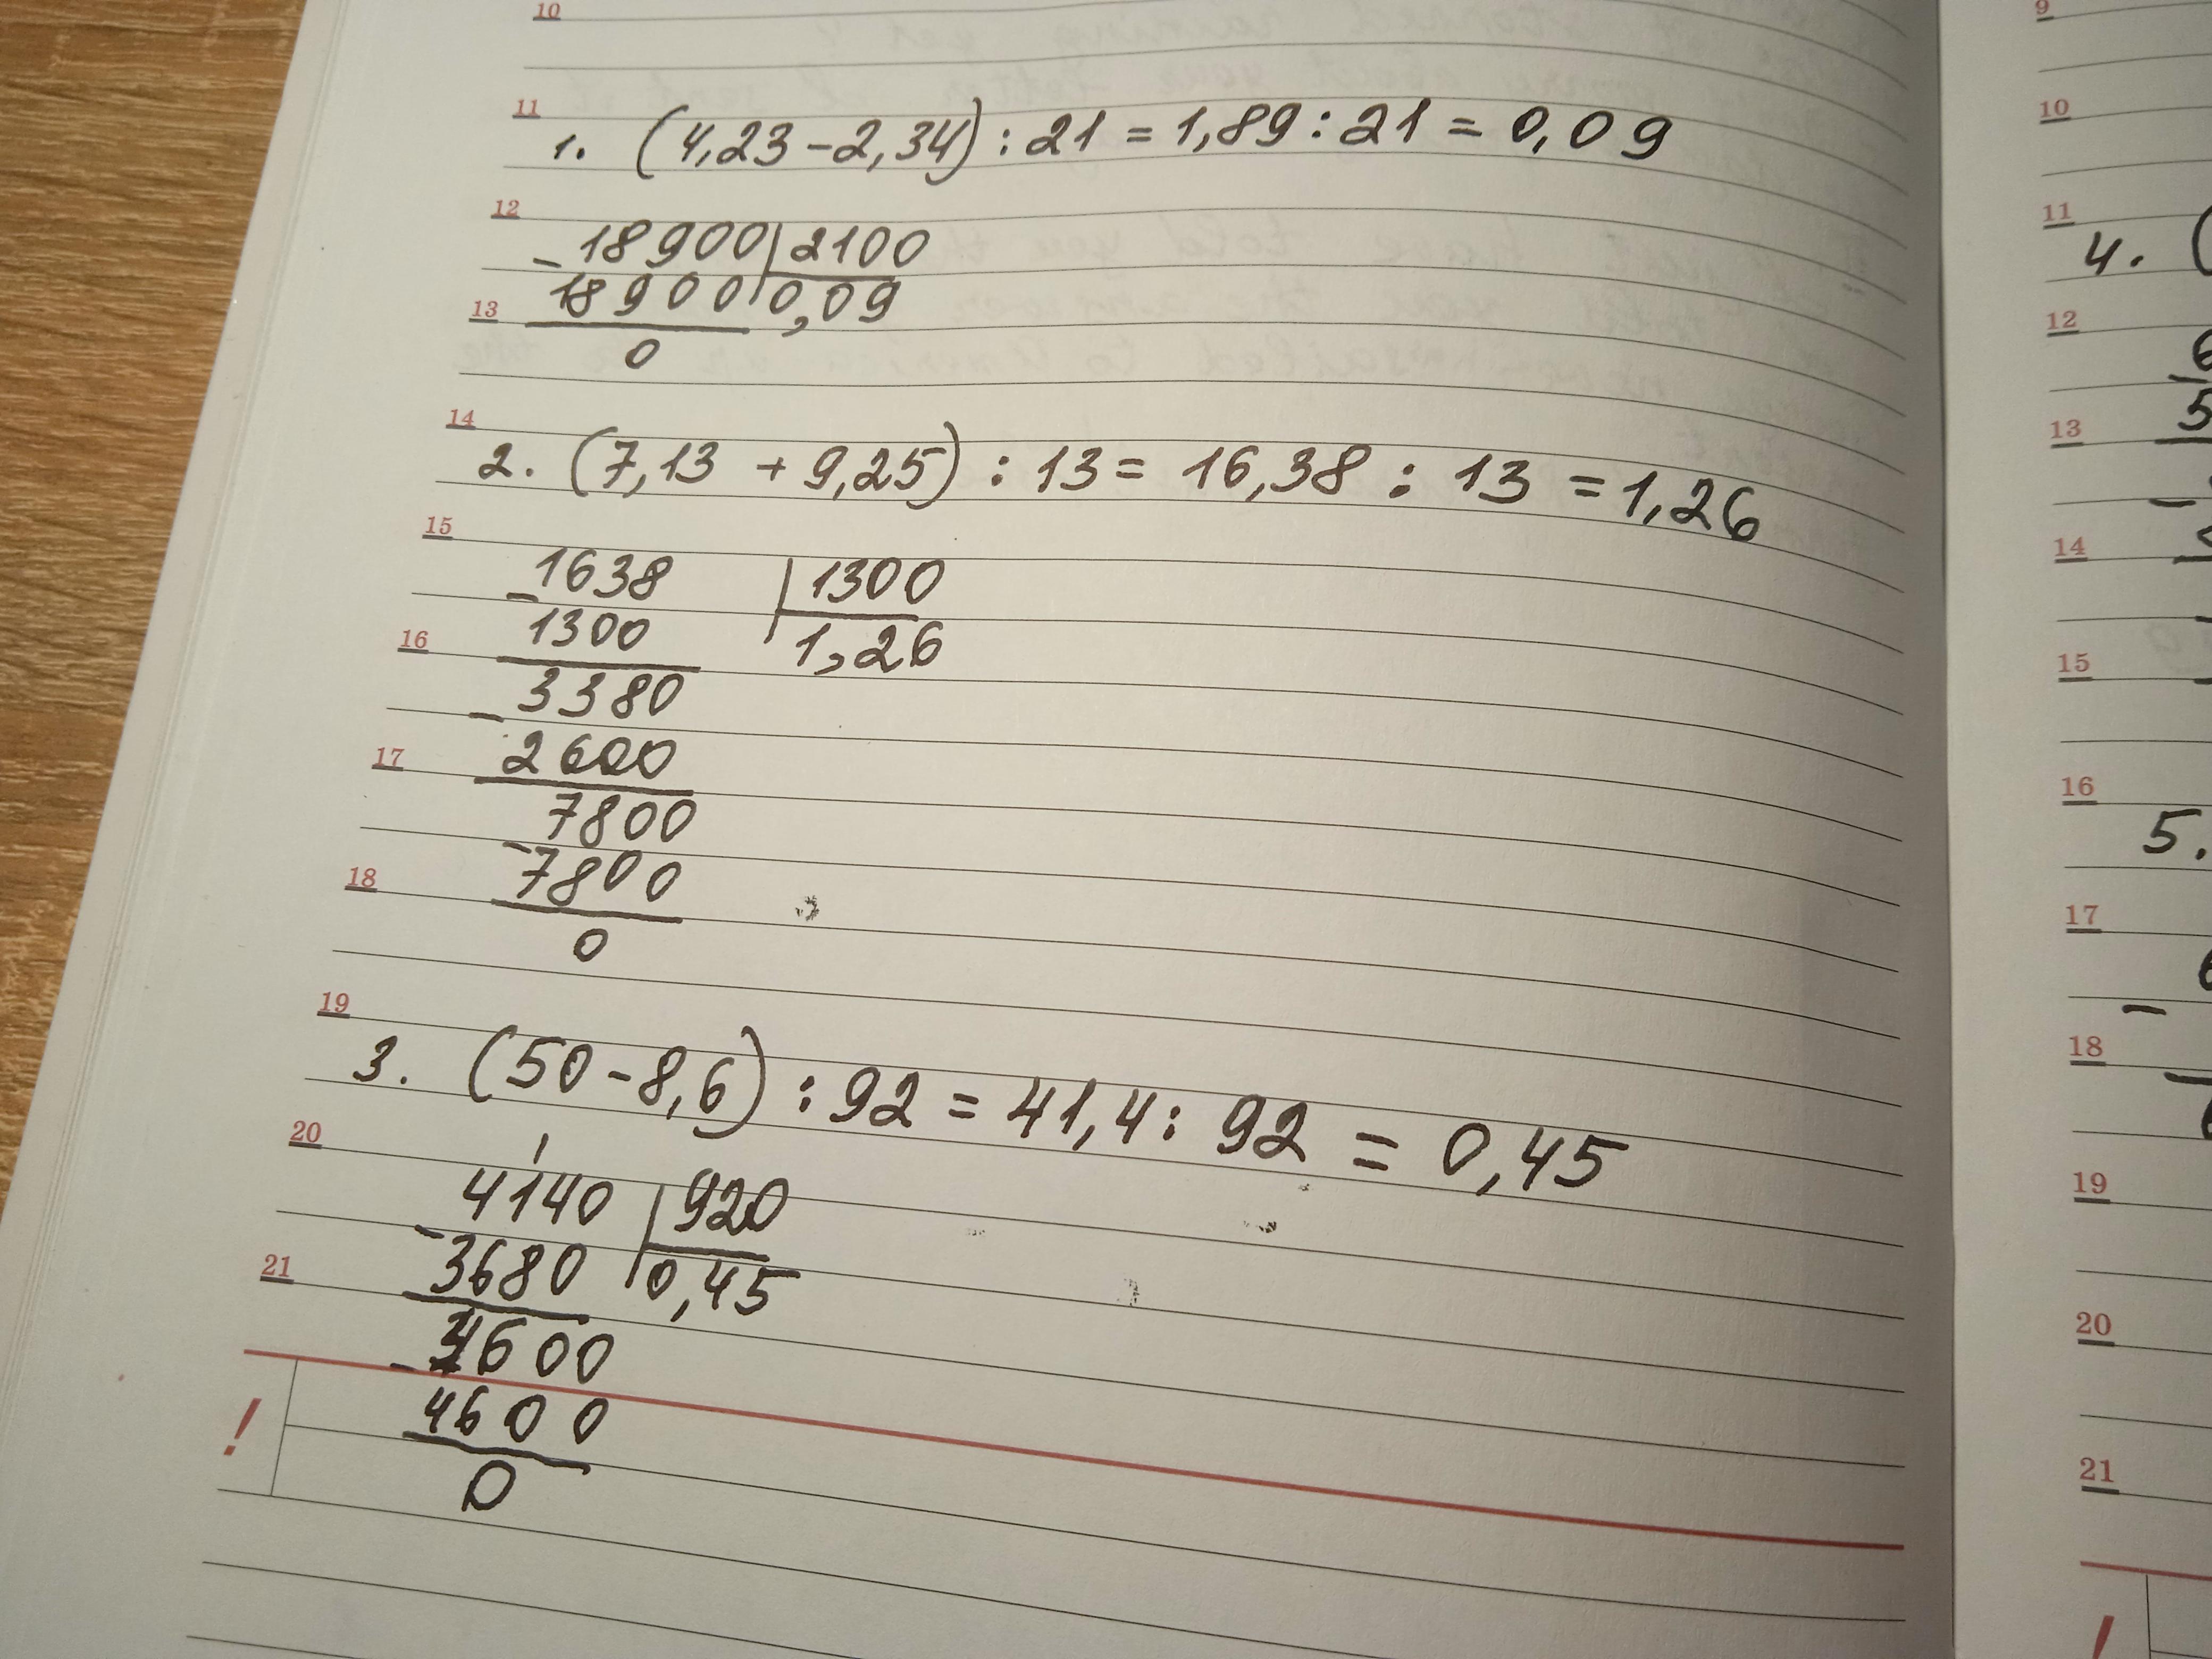 10
11
1. (4,23-2,34):21=1,89:21=0,09
12
-18900|2100
18900|0,09
13
0
14
2. (7,13 + 9,25) : 13 = 16,38 : 13 = 1,26
15
-1638 |1300
1300 1,26
16
3380
-2600
17
7800
-7800
18
0
19
3. (50-8,6) : 92 = 41,4 : 92 = 0,45
20
4140 |920
-3680 |0,45
21
4600
-4600
!
0
9
10
11
4. (
12
13
14
15
16
5.
17
18
19
20
21
!